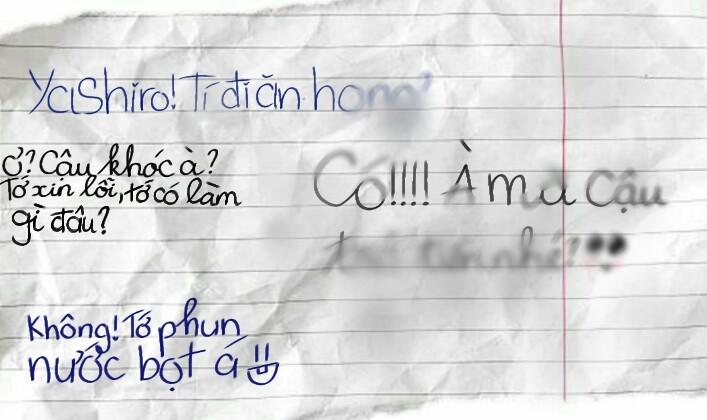 Yashiro! Tí đi ăn hong?
Có!!!! À mà Cậu
nhé!?
Ơ? Cậu khóc à?
Tớ xin lỗi, tớ có làm
gì đâu?
Không! Tớ phun
nước bọt á